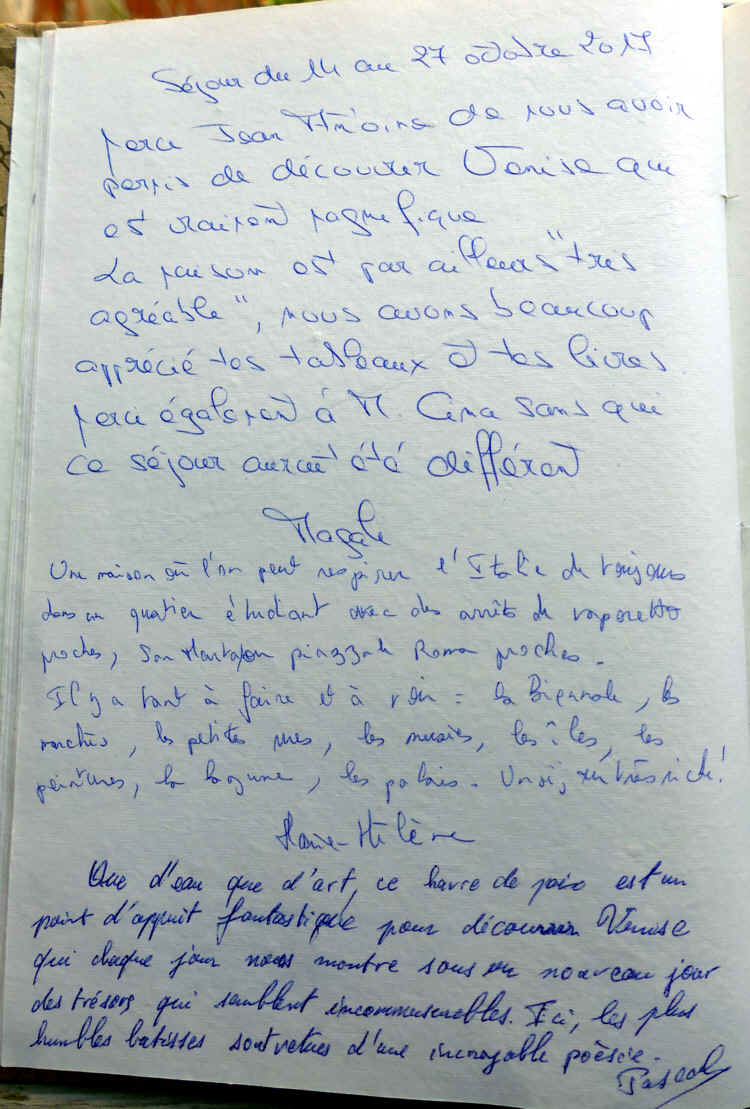 Séjour du 14 au 27 octobre 2017
merci Jean Antoine de nous avoir
permis de découvrir Venise qui
est vraiment magnifique
La maison est par ailleurs "très
agréable", nous avons beaucoup
apprécié tes tableaux et tes livres.
merci également à M. Cima sans qui
ce séjour aurait été différent
Magali
Une maison où l'on peut respirer l'Italie de toujours
dans un quartier étudiant avec des arrêts de vaporetto
proches, San Pantalon piazzale Roma proches.
Il y a tant à faire et à voir : la Biennale, les
marchés, les petites rues, les musées, les îles, les
peintures, la lagune, les palais. très riche!
Marie-Hélène
Que d'eau que d'art, ce havre de paix est un
point d'appuit fantastique pour découvrir Venise
qui chaque jour nous montre sous un nouveau jour
des trésors qui semblent incommensurables. Ici, les plus
humbles batisses sont vetues d'une incroyable poèsie.
Pascal